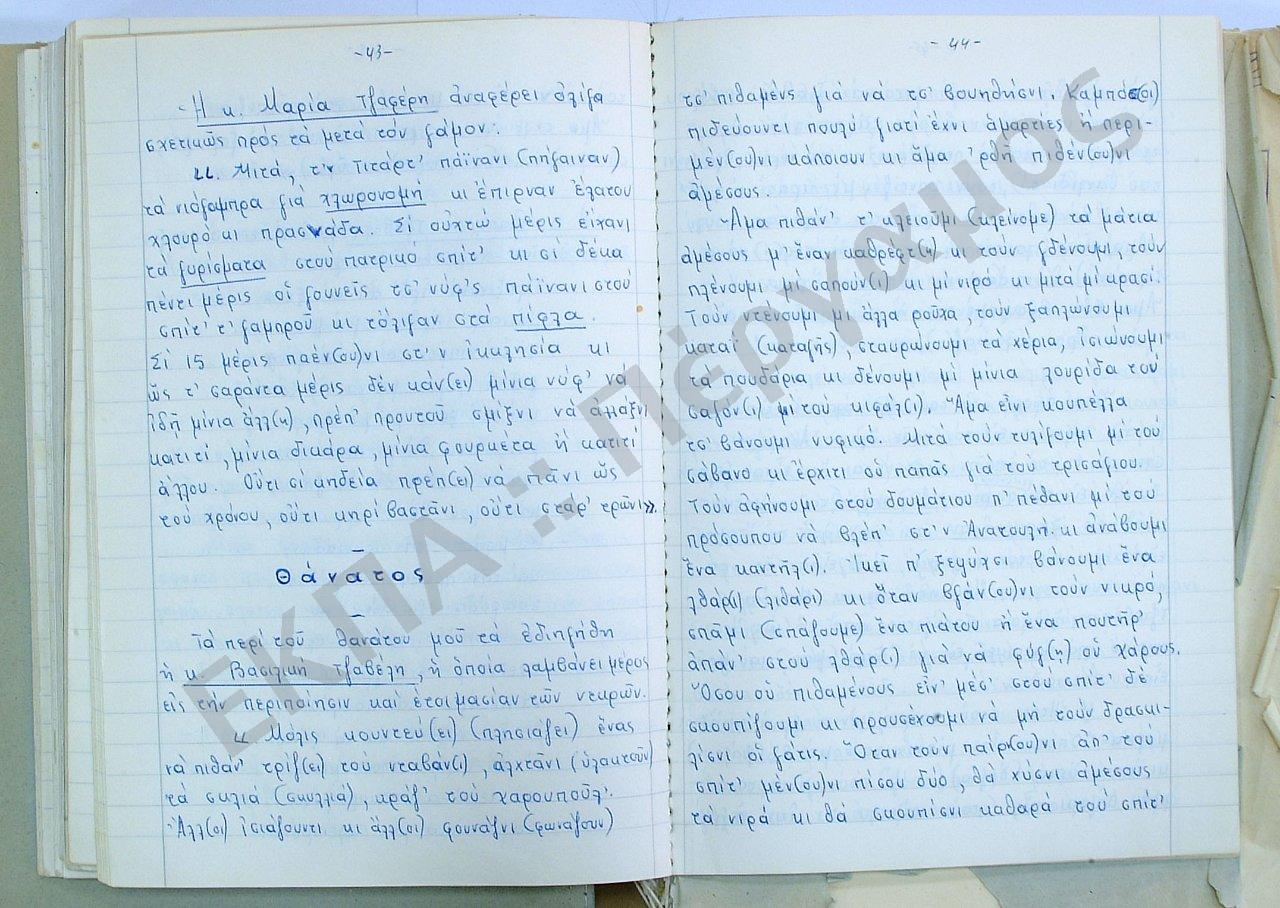 -43-
- Ἡ κ. Μαρία Τζαφέρη ἀναφέρει ὀλίγα
σχετικῶς πρός τά μετά τόν γάμον.
"Μιτά, τ'ν Τιτάρτ' πάϊνανι (πήγαιναν)
τά νιόγαμπρα γιά χλωρονομή κι ἔπιρναν ἔλατου
χλουρό κι πρασνάδα. Σί οὐχτώ μέρις εἴχανι
τά γυρίσματα στού πατρικό σπίτ' κι σί δέκα
πέντι μέρις οἱ γουνεῖς τσ' νύφ'ς πάϊνανι στού
σπίτ' τ' γαμπροῦ κι τὄλιγαν στά πίφλα.
Σί 15 μέρις παέν(ου)νι στ'ν ἰκκλησία κι
ὥς τ' σαράντα μέρις δέν κάν(ει) μίνια νύφ' νά
ἰδῇ μίνια ἄλλ(η), πρέπ' προυτοῦ σμίξνι νά ἀλλάξνι
κατιτί, μίνια δικάρα, μίνια φουρκέτα ἤ κατιτί
ἄλλου. Οὔτι σί κηδεία πρέπ(ει) νά πᾶνι ὥς
τού χρόνου, οὔτι κηρί βαστᾶνι, οὔτι στάρ' τρῶνι».
Θάνατος
Τά περί τοῦ θανάτου μοῦ τά ἐδιηγήθη
ἡ κ. Βασιλική Τζαβέλη, ἡ ὁποία λαμβάνει μέρος
εἰς τήν περιποίησιν καί ἑτοιμασίαν τῶν νεκρῶν.
"Μόλις κουντεύ(ει) (πλησιάζει) ἕνας
νά πιθάν' τρίζ(ει) τού νταβάν(ι), ἀλχτᾶνι (ὑλακτοῦν)
τά σκλιά (σκυλλιά), κράζ' τού χαρουπούλ'.
Ἄλλ(οι) ἰσιάζουντι κι ἄλλ(οι) φουνάζνι (φωνάζουν)
-44-
τσ' πιθαμένς γιά νά τσ' βουηθήσνι. Καμπόσ(οι)
πιδεύουντι πουλύ γιατί ἔχνι ἁμαρτίες ἤ περι-
μέν(ου)νι κάποιουν κι ἅμα 'ρθῆ πιθέν(ου)νι
ἀμέσους.
Ἅμα πιθάν' τ' κλειοῦμι (κλείνομε) τά μάτια
ἀμέσους μ' ἕναν καθρέφτ(η) κι τούν γδένουμι, τούν
πλένουμι μί σαπούν(ι) κι μί νιρό κι μιτά μί κρασί.
Τούν ντένουμι μί ἄλλα ροῦχα, τούν ξαπλώνουμι
καταΐ (καταγῆς), σταυρώνουμι τά χέρια, ἰσιώνουμι
τά πουδάρια κι δένουμι μί μίνια λουρίδα τού
σαγόν(ι) μί τού κιφάλ(ι). Ἅμα εἶνι κουπέλλα
τσ' βάνουμι νυφικό. Μιτά τούν τυλίγουμι μί τού
σάβανο κι ἔρχιτι οὑ παπᾶς γιά τού τρισάγιου.
Τούν ἀφήνουμι στού δουμάτιου π' πέθανι μί τού
πρόσουπου νά βλέπ' στ'ν Ἀνατουλή κι ἀνάβουμι
ἕνα καντήλ(ι). Ἰκεῖ π' ξεψύχσι βάνουμι ἕνα
λθάρ(ι) (λιθάρι) κι ὅταν βγάν(ου)νι τούν νικρό,
σπᾶμι (σπάζουμε) ἕνα πιάτου ἤ ἕνα πουτήρ'
ἀπάν' στού λθάρ(ι) γιά νά φύγ(η) οὑ χάρους.
Ὅσου οὑ πιθαμένους εἶν' μέσ' στου σπίτ' δέ
σκουπίζουμι κι προυσέχουμι νά μή τούν δρασκι-
λίσνι οἱ γάτις. Ὅταν τούν παίρ(ου)νι ἀπ' τού
σπίτ' μέν(ου)νι πίσου δύο, θά χύσνι ἀμέσους
τά νιρά κι θά σκουπίσνι καθαρά τού σπίτ'
ΕΚΠΑ :: Πέργαμος